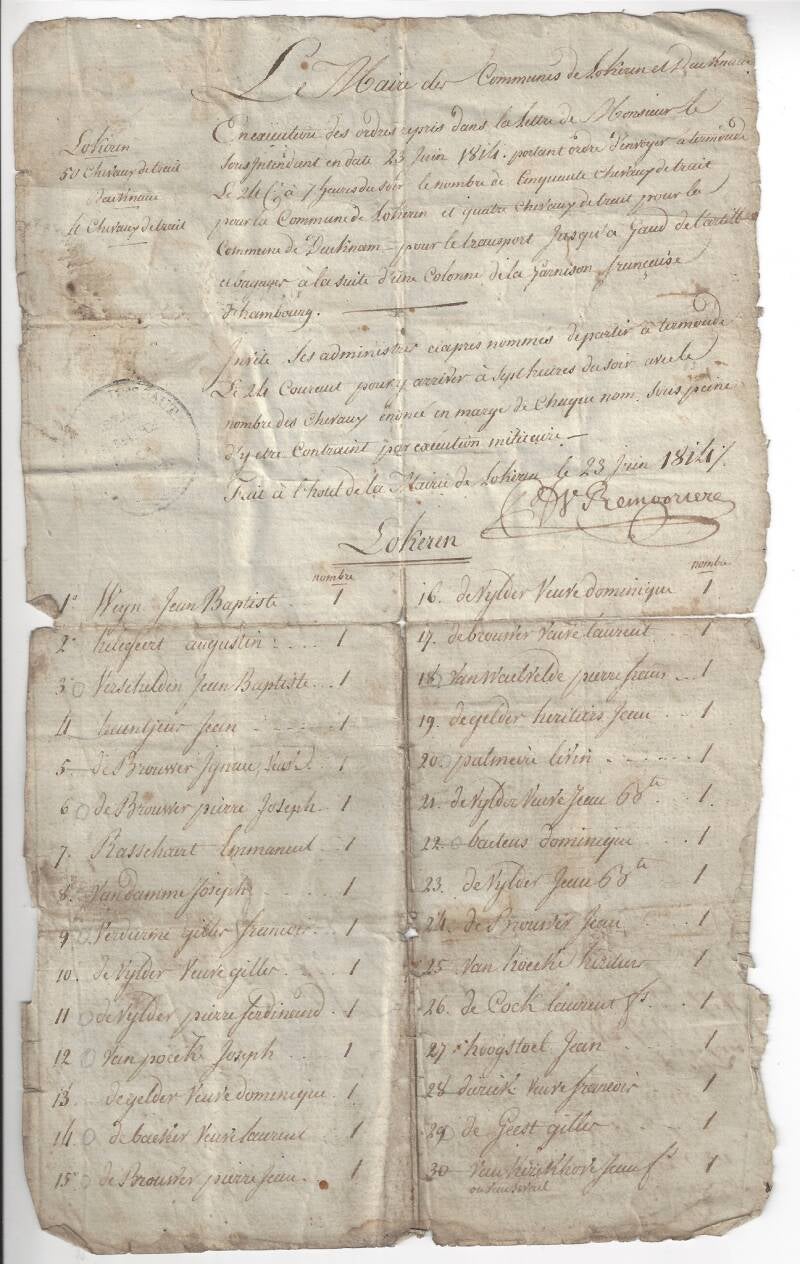 Le Maire des Communes de Lokeren et Dacknam
Lokeren
50 Chevaux de trait
Dacknam
4 Chevaux de trait
En exécution des ordres repris dans la lettre de Monsieur le
Sous Intendant en date 23 Juin 1814. portant ordre d'envoyer à termonde
Le 24 à 7 heures du soir le nombre de Cinquante chevaux de trait
pour la Commune de Lokeren et quatre chevaux de trait pour la
Commune de Dacknam — pour le transport Jusqu'à Gand de l'artill
et bagages à la suite d'une Colonne de la Garnison française
d'hambourg.
Invite ses administrés ciaprès nommés de partir à termonde
Le 24 Courant pour y arriver à Sept heures du soir avec le
nombre des Chevaux énoncé en marge de Chaque nom. sous peine
d'y etre Contraint par execution militaire —
Fait à l'hotel de la Mairie de Lokeren le 23 Juin 1814
Lokeren
nombre
1° Weyn Jean Baptiste 1
2° augustin 1
3 Verschelden Jean Baptiste 1
4 heuntjens Jean 1
5 de Brouwer Ignace, 1
6 de Brouwer pierre Joseph 1
7. Rasschaert Emmanuel 1
8 Vandamme Joseph 1
9 Verdurme gilles francois 1
10. de Vylder Veuve gilles 1
11 de Vylder pierre ferdinand 1
12 Van poeck Joseph 1
13. de gelder Veuve dominique 1
14 de backer Veuve laurent 1
15° de Brouwer pierre Jean 1
nombre
16. de Vylder Veuve dominique 1
17. de brouwer veuve laurent 1
18 Van Waelvelde pierre frans 1
19. de gelder heritiers Jean 1
20. palmeire livin 1
21. de Vylder Veuve Jean Bte 1
22 baetens dominique 1
23. de Vylder Jean Bte 1
24. de Brouwer Jean 1
25 van hoecke heritiers 1
26 de Cock laurent fs 1
27 hoogstoel Jean 1
28 durick veuve francois 1
29 de Geest gilles 1
30 Van kerckhove Jean fs 1